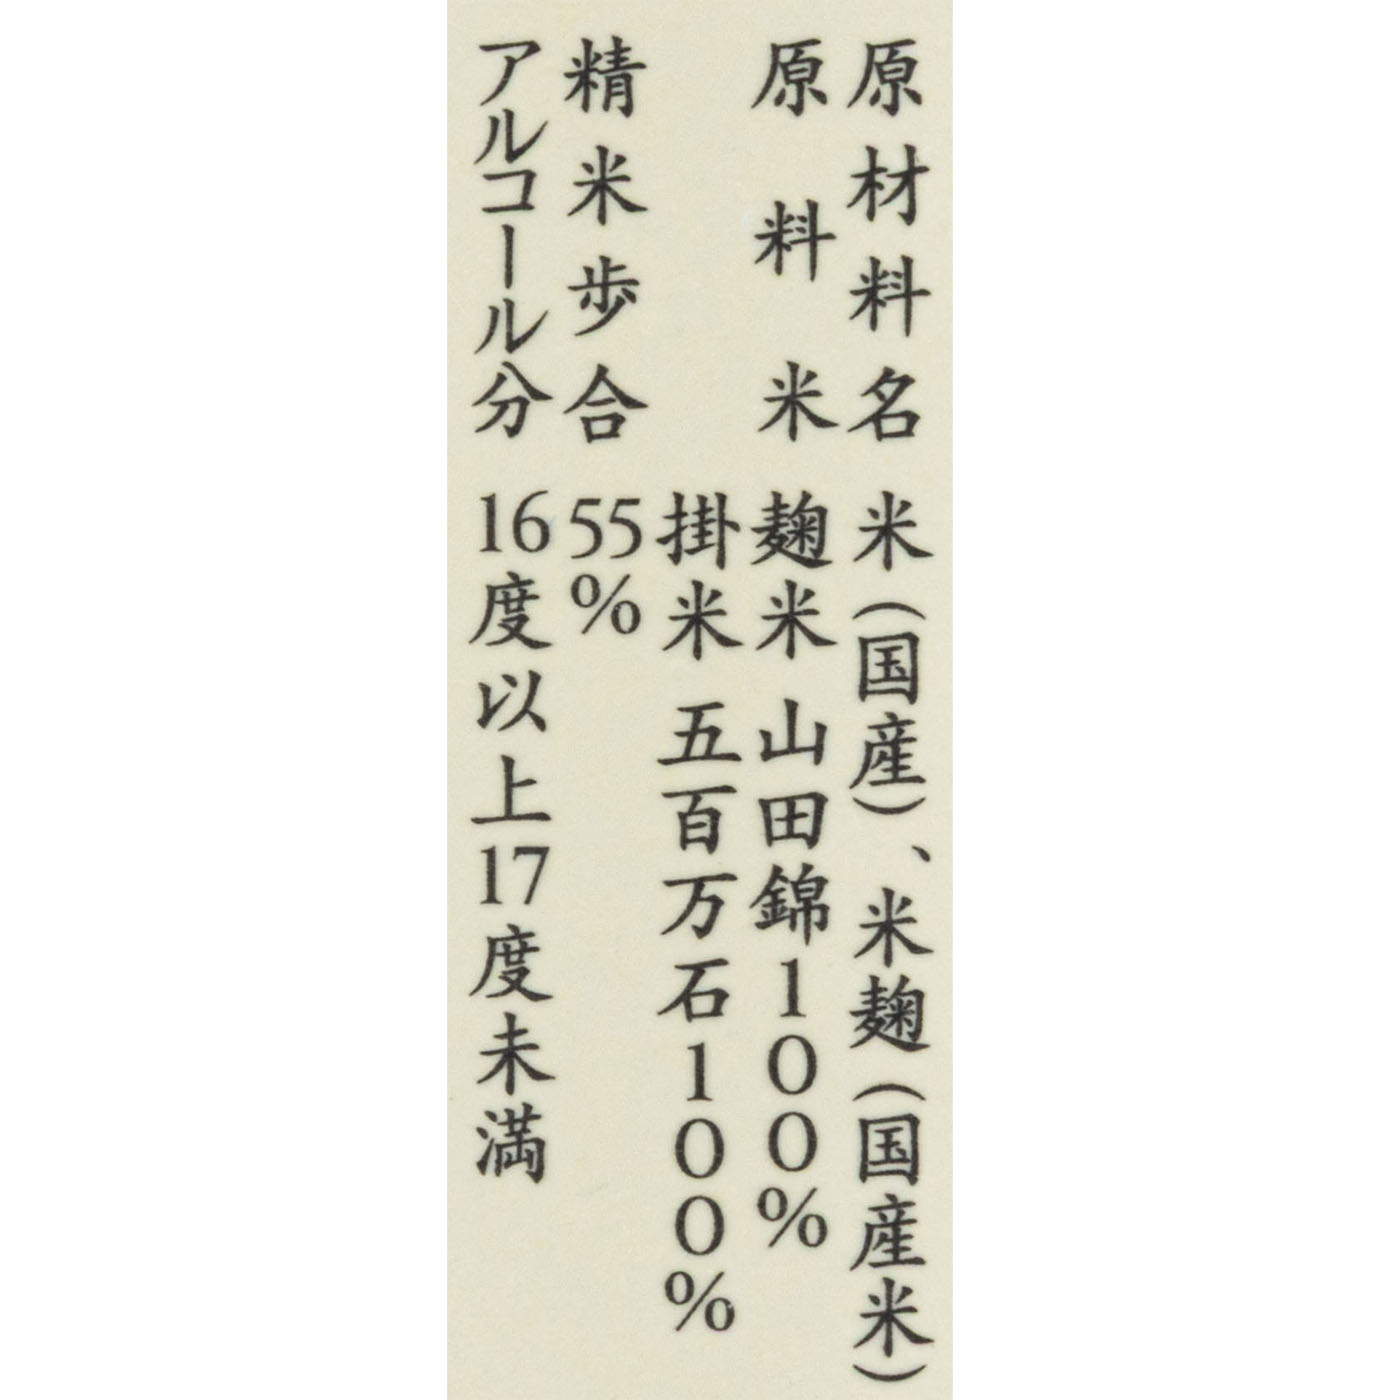 原材料名 米(国産)、米麹(国産米)
原料米 麹米 山田錦100%
掛米 五百万石100%
精米歩合 55%
アルコール分 16度以上17度未満